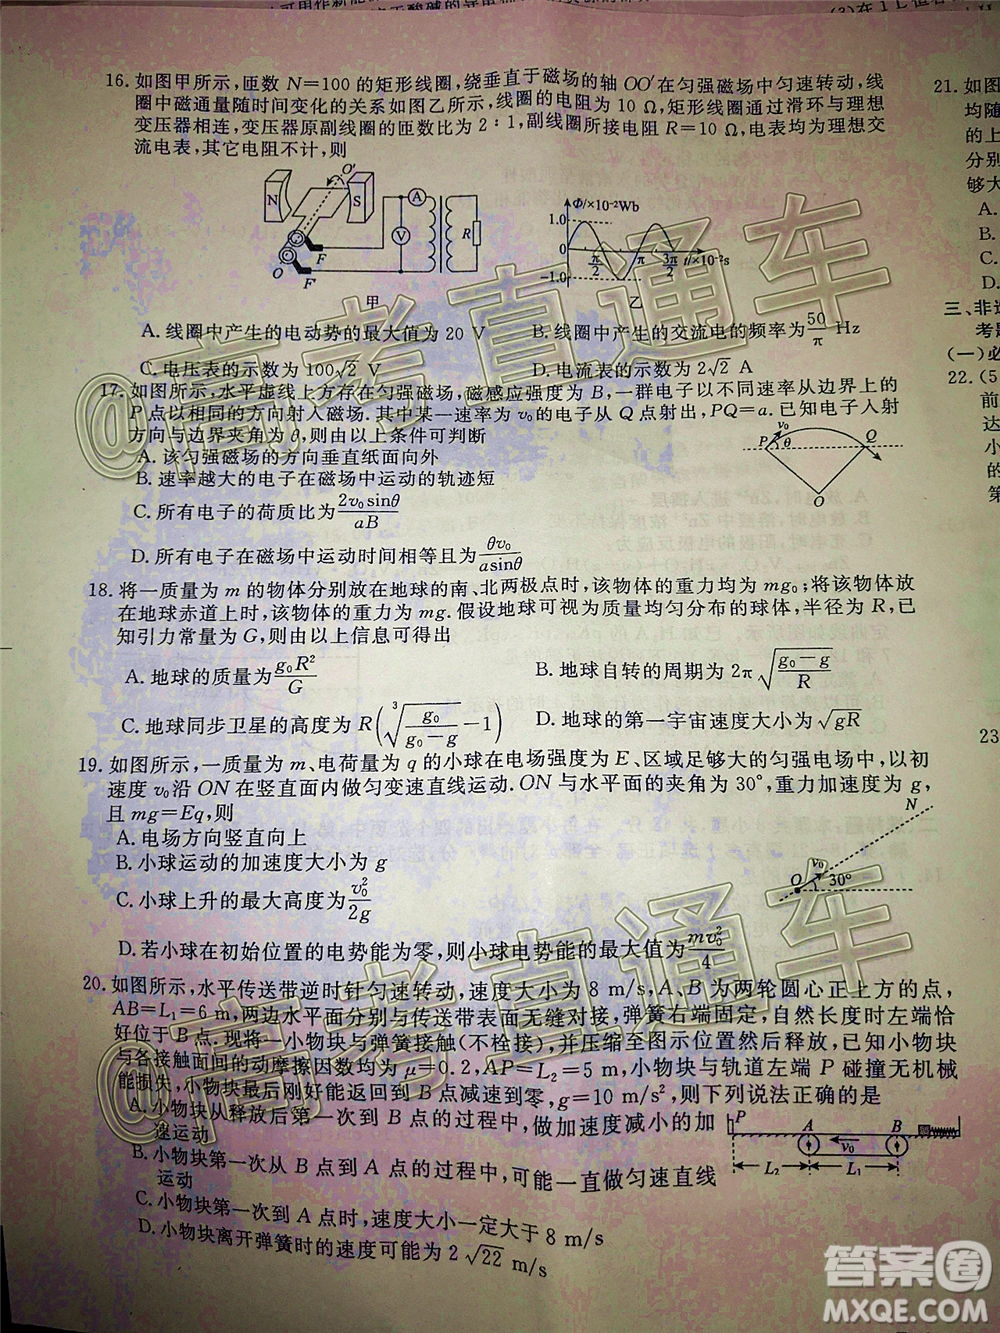 16. 如图甲所示,匝数 N=100 的矩形线圈,绕垂直于磁场的轴 OO′在匀强磁场中匀速转动,线
圈中磁通量随时间变化的关系如图乙所示,线圈的电阻为 10 Ω,矩形线圈通过滑环与理想
变压器相连,变压器原副线圈的匝数比为 2∶1,副线圈所接电阻 R=10 Ω,电表均为理想交
流电表,其它电阻不计,则
N S O′ A V R F F O 甲
Φ/×10⁻²Wb 1.0 0 -1.0 π/2 π 3π/2 t/×10⁻²s 乙
A. 线圈中产生的电动势的最大值为 20 V B. 线圈中产生的交流电的频率为50/π Hz
C. 电压表的示数为 100√2 V D. 电流表的示数为 2√2 A
17. 如图所示,水平虚线上方存在匀强磁场,磁感应强度为 B,一群电子以不同速率从边界上的
P 点以相同的方向射入磁场.其中某一速率为 v₀的电子从 Q 点射出,PQ=a.已知电子入射
方向与边界夹角为 θ,则由以上条件可判断
A. 该匀强磁场的方向垂直纸面向外
B. 速率越大的电子在磁场中运动的轨迹短
C. 所有电子的荷质比为2v₀sinθ/aB
D. 所有电子在磁场中运动时间相等且为θv₀/asinθ
P v₀ θ Q O
18. 将一质量为 m 的物体分别放在地球的南、北两极点时,该物体的重力均为 mg₀;将该物体放
在地球赤道上时,该物体的重力为 mg.假设地球可视为质量均匀分布的球体,半径为 R,已
知引力常量为 G,则由以上信息可得出
A. 地球的质量为g₀R²/G B. 地球自转的周期为 2π√((g₀-g)/R)
C. 地球同步卫星的高度为 R(∛(g₀/(g₀-g))-1) D. 地球的第一宇宙速度大小为√gR
19. 如图所示,一质量为 m、电荷量为 q 的小球在电场强度为 E、区域足够大的匀强电场中,以初
速度 v₀沿 ON 在竖直面内做匀变速直线运动.ON 与水平面的夹角为 30°,重力加速度为 g,
且 mg=Eq,则
A. 电场方向竖直向上
B. 小球运动的加速度大小为 g
C. 小球上升的最大高度为v₀²/2g
D. 若小球在初始位置的电势能为零,则小球电势能的最大值为mv₀²/4
N O v₀ 30°
20. 如图所示,水平传送带逆时针匀速转动,速度大小为 8 m/s,A、B 为两轮圆心正上方的点,
AB=L₁=6 m,两边水平面分别与传送带表面无缝对接,弹簧右端固定,自然长度时左端恰
好位于 B 点.现将一小物块与弹簧接触(不栓接),并压缩至图示位置然后释放,已知小物块
与各接触面间的动摩擦因数均为 μ=0.2,AP=L₂=5 m,小物块与轨道左端 P 碰撞无机械
能损失,小物块最后刚好能返回到 B 点减速到零,g=10 m/s²,则下列说法正确的是
A. 小物块从释放后第一次到 B 点的过程中,做加速度减小的加
速运动
B. 小物块第一次从 B 点到 A 点的过程中,可能一直做匀速直线
运动
C. 小物块第一次到 A 点时,速度大小一定大于 8 m/s
D. 小物块离开弹簧时的速度可能为 2√22 m/s
P A B v₀ L₂ L₁
21. 如图
均随
的上
分别
够大
A.
B.
C.
D.
三、非选
考题
(一)必
22. (5
前
达
小
的
第
23
@高考直通车
@高考直通车
答案圈
MXQE.COM